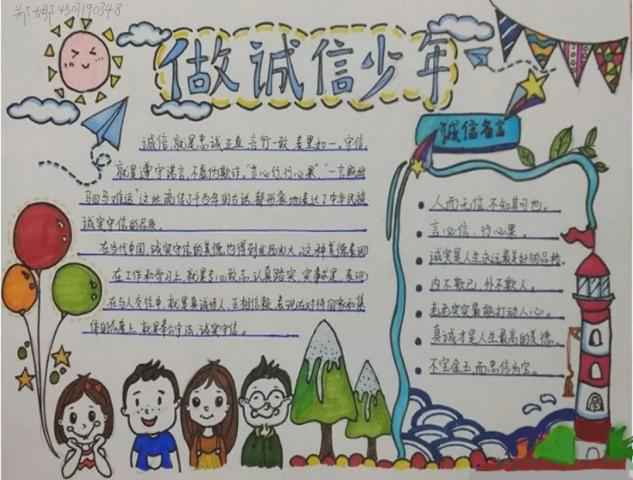 郑娜 430190348
做诚信少年
诚信,就是忠诚正直,言行一致,表里如一,守信,
就是遵守诺言,不虚伪欺诈。“言必行,行必果”“一言既出
驷马难追”这些流传了千百年的古话,都形象地表达了中华民族
诚实守信的品质。
在当代中国,诚实守信的美德也得到发扬光大,这种美德表现
在工作和学习上,就是专心致志,认真踏实,实事求是,表现
在与人交往中,就是真诚待人,互相信赖,表现在对待国家和集
体的态度上,就是奉公守法,诚实守信。
诚信名言
人而无信,不知其可也。
言必信,行必果。
诚实是人生永远最美好的品格。
内不欺己,外不欺人。
老老实实最能打动人心。
真诚才是人生最高的美德。
不宝金玉,而忠信为宝。